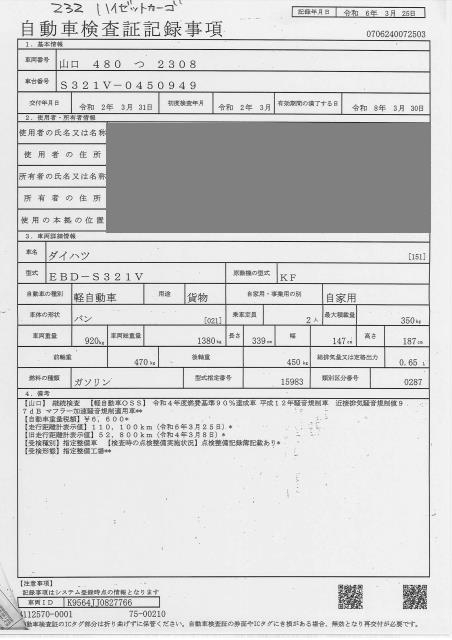 232 ハイゼットカーゴ
記録年月日 令和 6年 3月 25日
自動車検査証記録事項
0706240072503
1．基本情報
車両番号 山口 480 つ 2308
車台番号 S321V-0450949
交付年月日 令和 2年 3月 31日 初度検査年月 令和 2年 3月 有効期間の満了する日 令和 8年 3月 30日
2．使用者・所有者情報
使用者の氏名又は名称
使用者の住所
所有者の氏名又は名称
所有者の住所
使用の本拠の位置
3．車両詳細情報
車名 ダイハツ [151]
型式 EBD-S321V 原動機の型式 KF
自動車の種別 軽自動車 用途 貨物 自家用・事業用の別 自家用
車体の形状 バン [021] 乗車定員 2人 最大積載量 350kg
車両重量 920kg 車両総重量 1380kg 長さ 339cm 幅 147cm 高さ 187cm
前軸重 470kg 後軸重 450kg 総排気量又は定格出力 0.65 L
燃料の種類 ガソリン 型式指定番号 15983 類別区分番号 0287
4．備考
【山口】 継続検査 【軽自動車OSS】 令和4年度燃費基準90%達成車 平成12年騒音規制車 近接排気騒音規制値9
7dB マフラー加速騒音規制適用車**
【自動車重量税額】¥6,600*
【走行距離計表示値】110,100km（令和6年3月25日）*
【旧走行距離計表示値】52,800km（令和4年3月8日）*
【受検種別】指定整備車 【検査時の点検整備実施状況】点検整備記録簿記載あり*
【受検形態】指定整備工場**
【注意事項】
記載事項はシステム登録時点の情報となります
車両ID K9564JJ0827766
4112570-01 75-00210
自動車検査証のICタグ部分は折り曲げずに保管ください。自動車検査証の券面やICタグにき損がある場合、無効となり再交付が必要です。